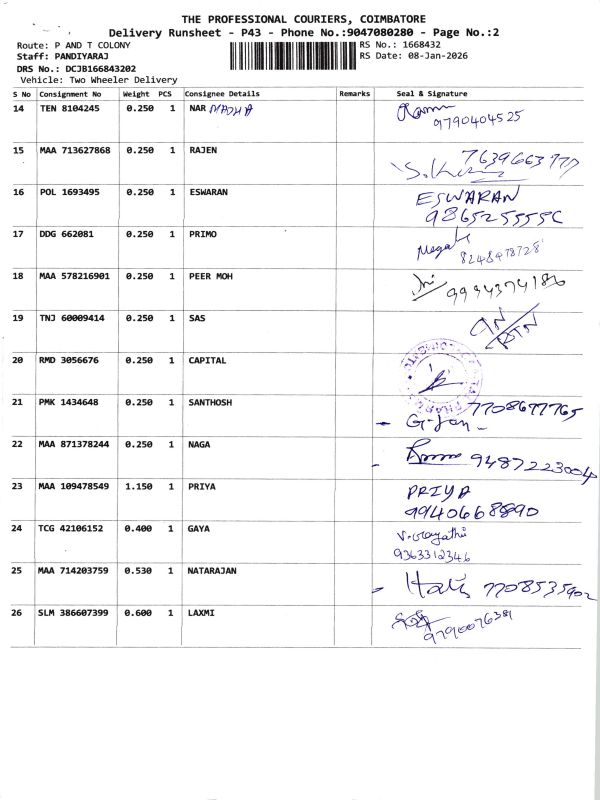 THE PROFESSIONAL COURIERS, COIMBATORE
Delivery Runsheet - P43 - Phone No.:9047080280 - Page No.:2
Route: P AND T COLONY RS No.: 1668432
Staff: PANDIYARAJ RS Date: 08-Jan-2026
DRS No.: DCJB166843202
Vehicle: Two Wheeler Delivery
S No Consignment No Weight PCS Consignee Details Remarks Seal & Signature
14 TEN 8104245 0.250 1 NAR MADHA
9790404525
15 MAA 713627868 0.250 1 RAJEN
16 POL 1693495 0.250 1 ESWARAN ESWARAN
17 DDG 662081 0.250 1 PRIMO
18 MAA 578216901 0.250 1 PEER MOH
9994374186
19 TNJ 60009414 0.250 1 SAS
20 RMD 3056676 0.250 1 CAPITAL
21 PMK 1434648 0.250 1 SANTHOSH 7708677765
22 MAA 871378244 0.250 1 NAGA 9487223004
23 MAA 109478549 1.150 1 PRIYA PRIYA
9940668890
24 TCG 42106152 0.400 1 GAYA V. Gayathi
9363312346
25 MAA 714203759 0.530 1 NATARAJAN 7708535902
26 SLM 386607399 0.600 1 LAXMI
9790076381